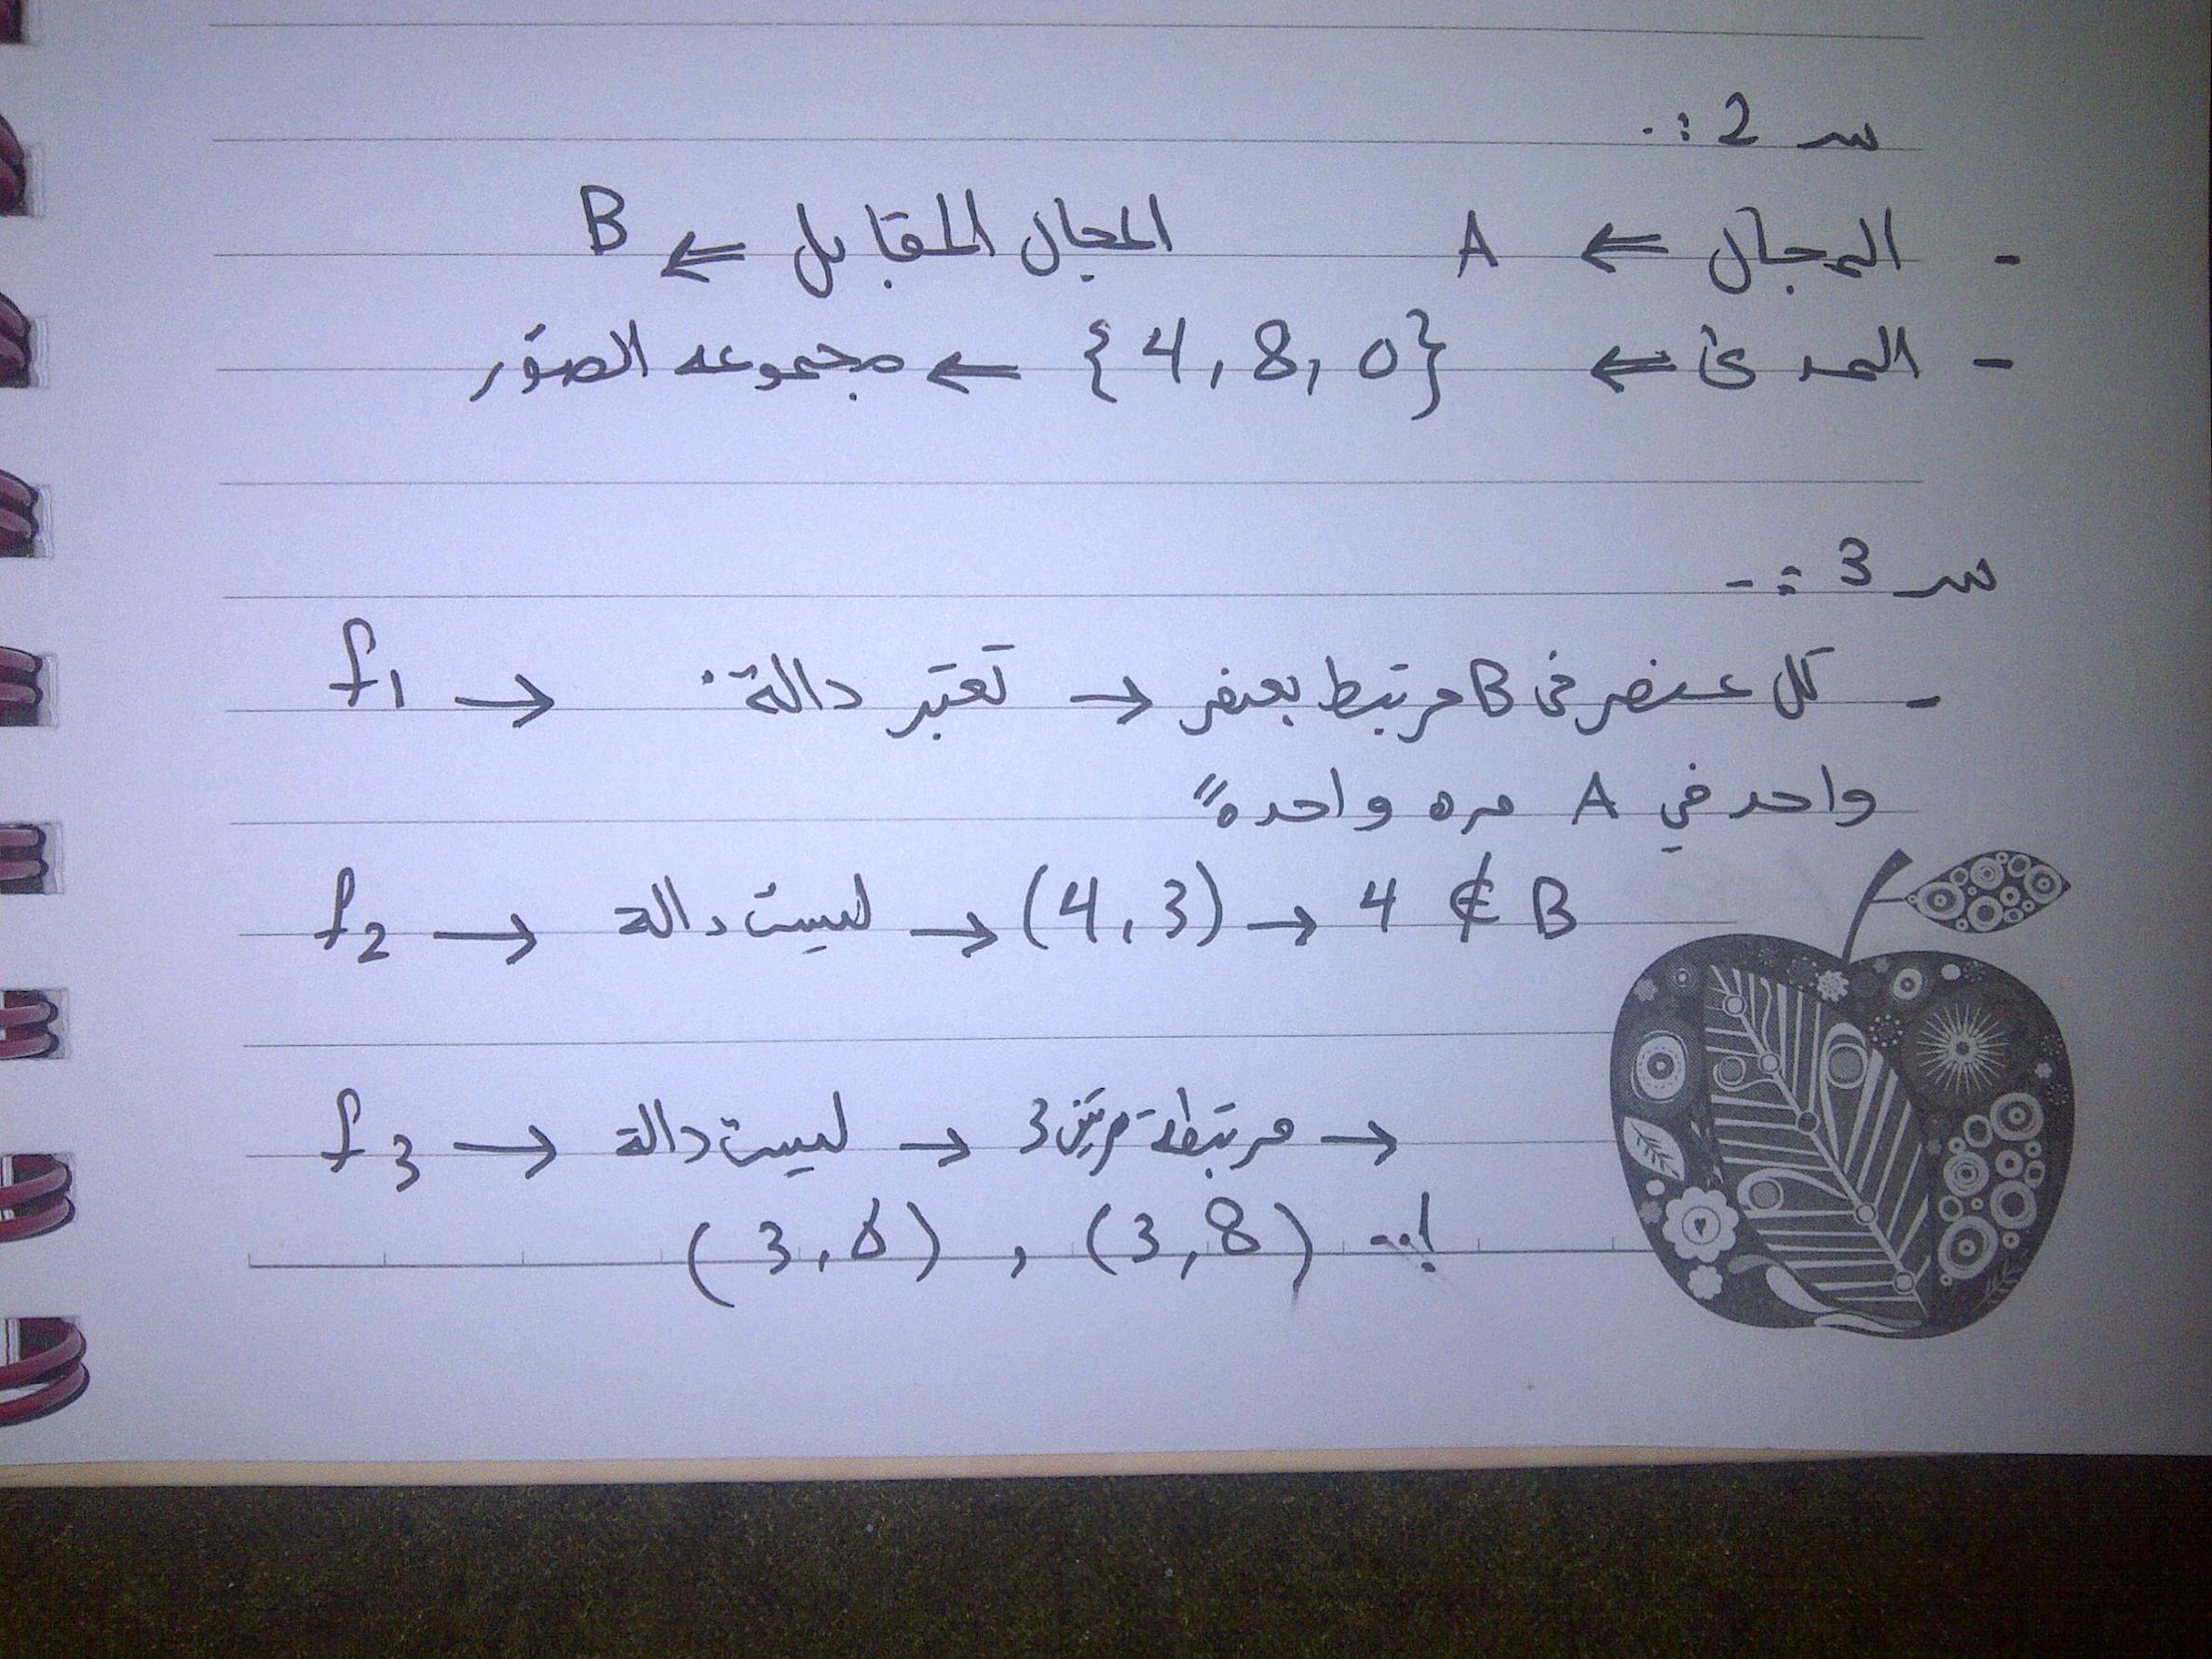 س 2 :.
- المجال ⇐ A المجال المقابل ⇐ B
- المدى ⇐ {4, 8, 0} ← مجموعه الصور
س 3 :-
f1 → تعتبر دالة. → - كل عنصر في B مرتبط بعنصر
واحد في A مره واحدة"
f2 → ليست دالة → (4, 3) → 4 ∉ B
f3 → ليست دالة → 3 مرتبطة مرتين →
(3, 6) , (3, 8) ..!